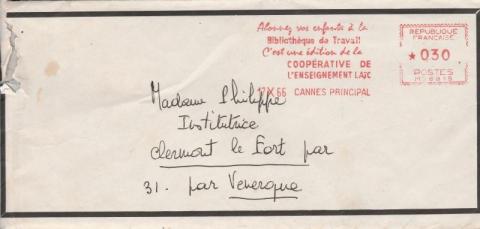 Abonnez vos enfants à la
Bibliothèque de Travail
C'est une édition de la
COOPÉRATIVE DE
L'ENSEIGNEMENT LAÏC
66 CANNES PRINCIPAL
RÉPUBLIQUE
FRANÇAISE
★030
POSTES
Madame Philippe
Institutrice
Clermont le Fort par
31. par Venerque